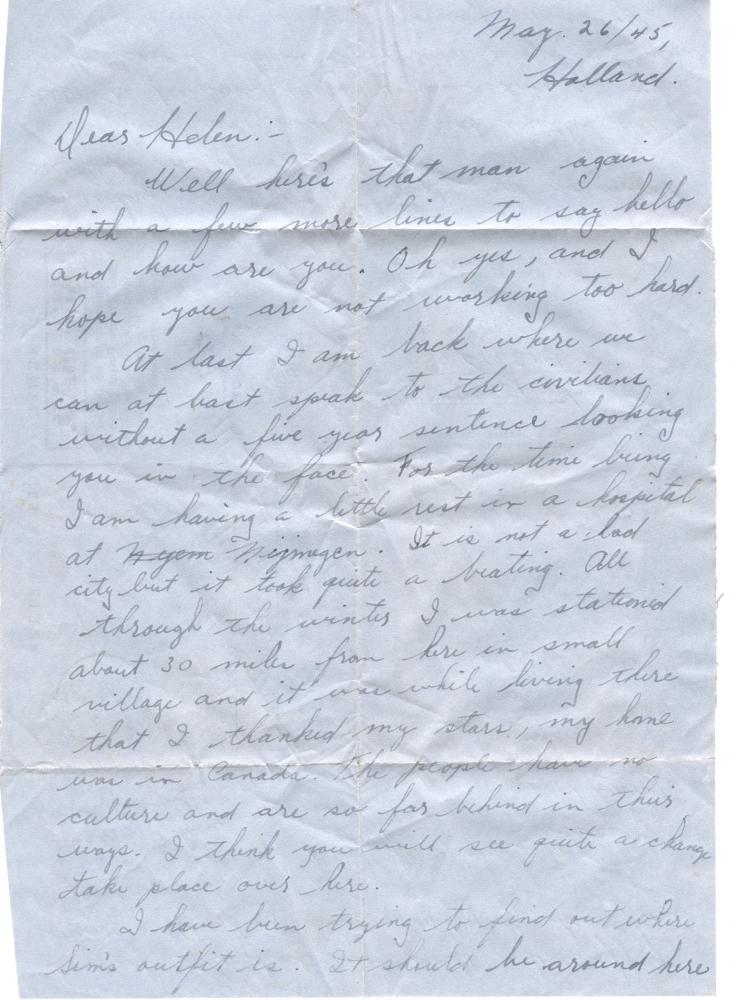 May. 26/45,
Holland.
Dear Helen:-
Well here's that man again
with a few more lines to say hello
and how are you. Oh yes, and I
hope you are not working too hard.
At last I am back where we
can at least speak to the civilians
without a five year sentence looking
you in the face. For the time being
I am having a little rest in a hospital
at Nijmegen. It is not a bad
city but it took quite a beating. All
through the winter I was stationed
about 30 miles from here in small
village and it was while living there
that I thanked my stars, my home
was in Canada. The people have no
culture and are so far behind in their
ways. I think you will see quite a change
take place over here.
I have been trying to find out where
Sim's outfit is. It should be around here